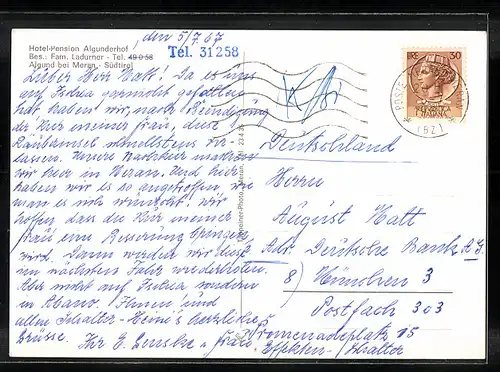 den 5/7.67
Hotel-Pension Algunderhof
Bes.: Fam. Ladurner - Tel. 49 0 58
Tél. 31258
Algund bei Meran - Südtirol
Lieber Herr Hatt! Da es uns
auf Ischia garnicht gefallen
hat, haben wir, nach Beendigung
der Kur meiner Frau, diese
Räuberinsel schnellstens ver-
lassen. Unsere Nachkur machen
wir hier in Meran. Und hier
haben wir es so angetroffen, wie
man es sich wünscht. Wir
hoffen, dass die Kur meiner
Frau eine Besserung bringen
wird. Dann würden wir diese
im nächsten Jahr wiederholen.
Aber nicht auf Ischia sondern
in Abano. Ihnen und
allen Schalter- herzliche
Grüsse. Ihr E. u. Frau
LIRE 30
POSTE
Deutschland
Herrn
August Hatt
Adr. Deutsche Bank A.G.
8) München 3
Postfach 303
Promenadeplatz 15
Effekten-Schalter